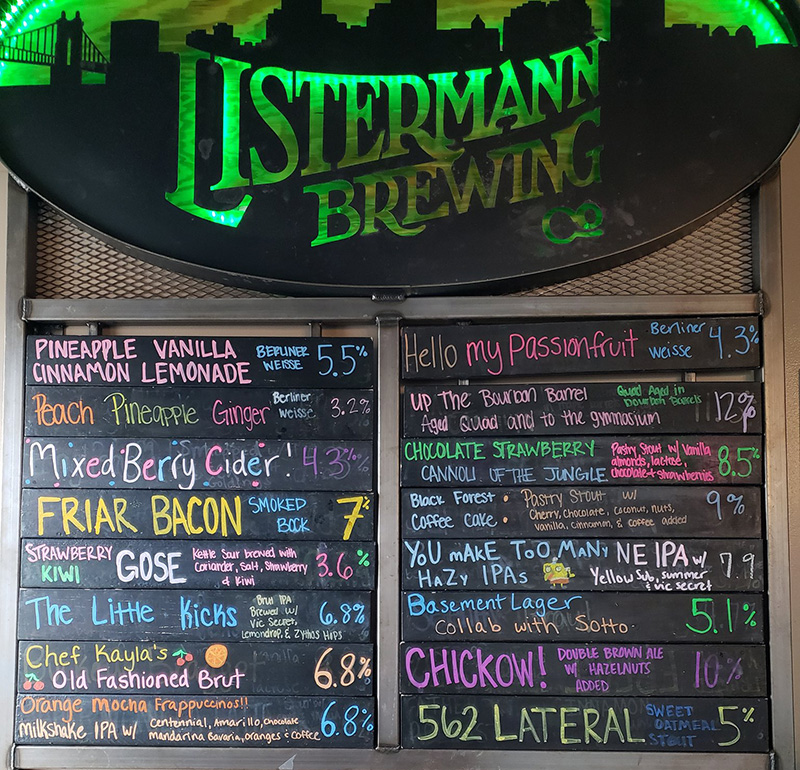 LISTERMANN
BREWING
CO
PINEAPPLE VANILLA
CINNAMON LEMONADE
BERLINER
WEISSE
5.5%
Peach Pineapple Ginger
Berliner
weisse
3.2%
Mixed Berry Cider!
4.3%
FRIAR BACON
SMOKED
BOCK
7%
STRAWBERRY
KIWI
GOSE
Kettle Sour brewed with
Coriander, Salt, Strawberry
& Kiwi
3.6%
The Little Kicks
Brut IPA
Brewed w/
Vic Secret,
Lemondrop, & Zythos Hops
6.8%
Chef Kayla's
Old Fashioned Brut
6.8%
Orange Mocha Frappuccinos!!
Milkshake IPA w/
Centennial, Amarillo, Chocolate
mandarina Bavaria, oranges & coffee
6.8%
Hello my Passionfruit
Berliner
Weisse
4.3%
UP The Bourbon Barrel
Aged Quad and to the gymnasium
Quad Aged in
Bourbon Barrels
12%
CHOCOLATE STRAWBERRY
CANNOLI OF THE JUNGLE
Pastry Stout w/ Vanilla
almonds, lactose,
chocolate + strawberries
8.5%
Black Forest
Coffee Cake
Pastry Stout w/
Cherry, Chocolate, Coconut, nuts,
vanilla, cinnamon, & coffee added
9%
YOU MAKE TOO MANY
HAZY IPAs
NE IPA w/
Yellow Sub, summer
& vic secret
7.9
Basement Lager
Collab with Sotto
5.1%
CHICKOW!
DOUBLE BROWN ALE
W/ HAZELNUTS
ADDED
10%
562 LATERAL
SWEET
OATMEAL
STOUT
5%